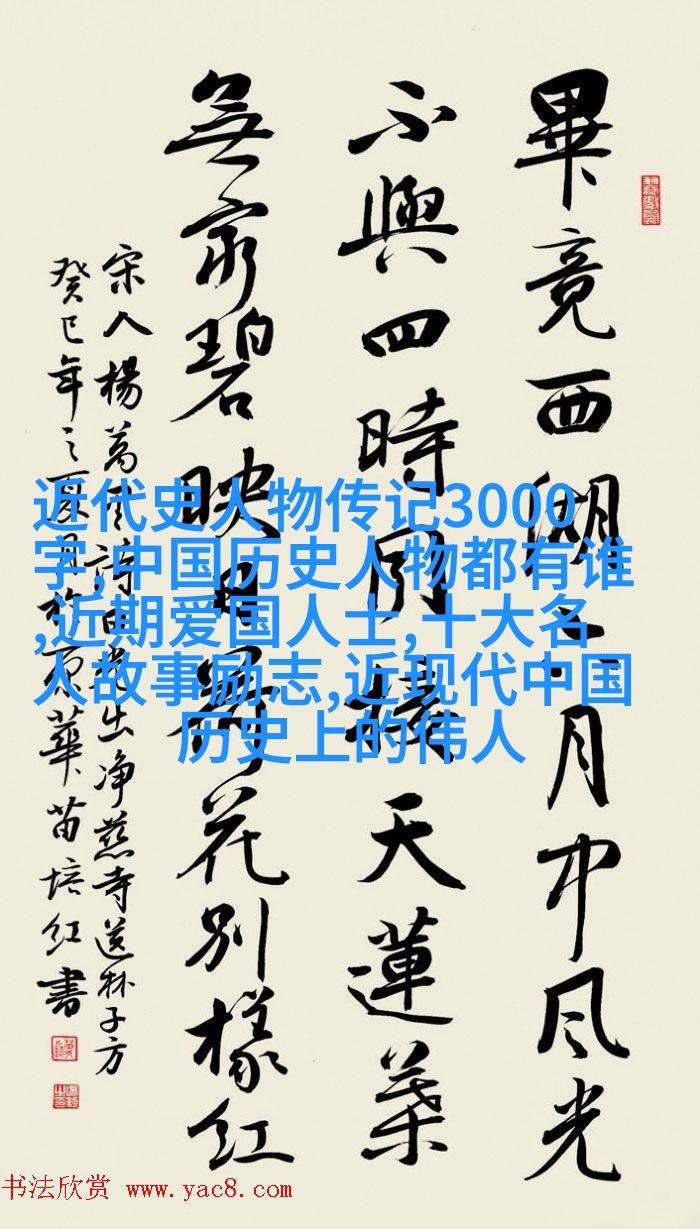 畢竟西湖六月中风光
不與四時同接天蓮葉
無窮碧映日荷花別樣红
宋人楊萬里詩曉出净慈寺送林子方
癸巳年之夏月於京華苗培红書
近代史人物传记3000
字,中国历史人物都有谁
,近期爱国人士,十大名
人故事励志,近现代中国
历史上的伟人
书法欣赏 www.yac8.com